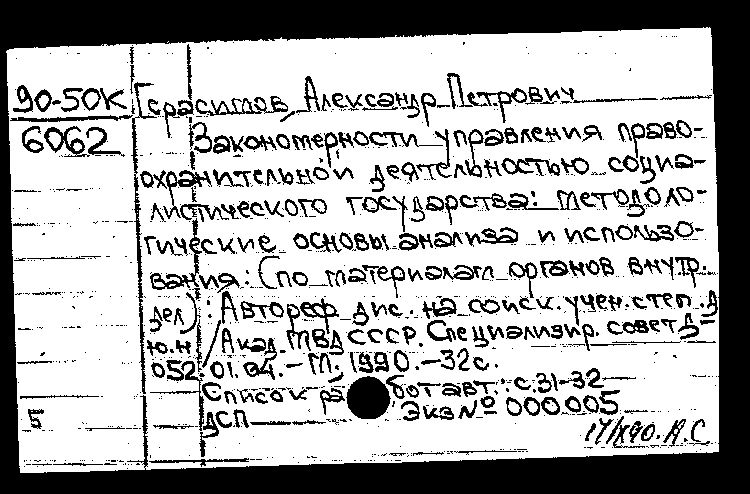 90-50К Герасимов, Александр Петрович
6062 Закономерности управления право-
охранительной деятельностью социа-
листического государства: методоло-
гические основы анализа и использо-
вания: (по материалам органов внутр.
дел): Автореф. дис. на соиск. учен. степ. д-
ю.н / Акад. МВД СССР. Специализир. совет Д-
052.01.04. - М., 1990. - 32 с.
Список работ авт.: с. 31-32
5 ДСП Экз № 000005
А.С